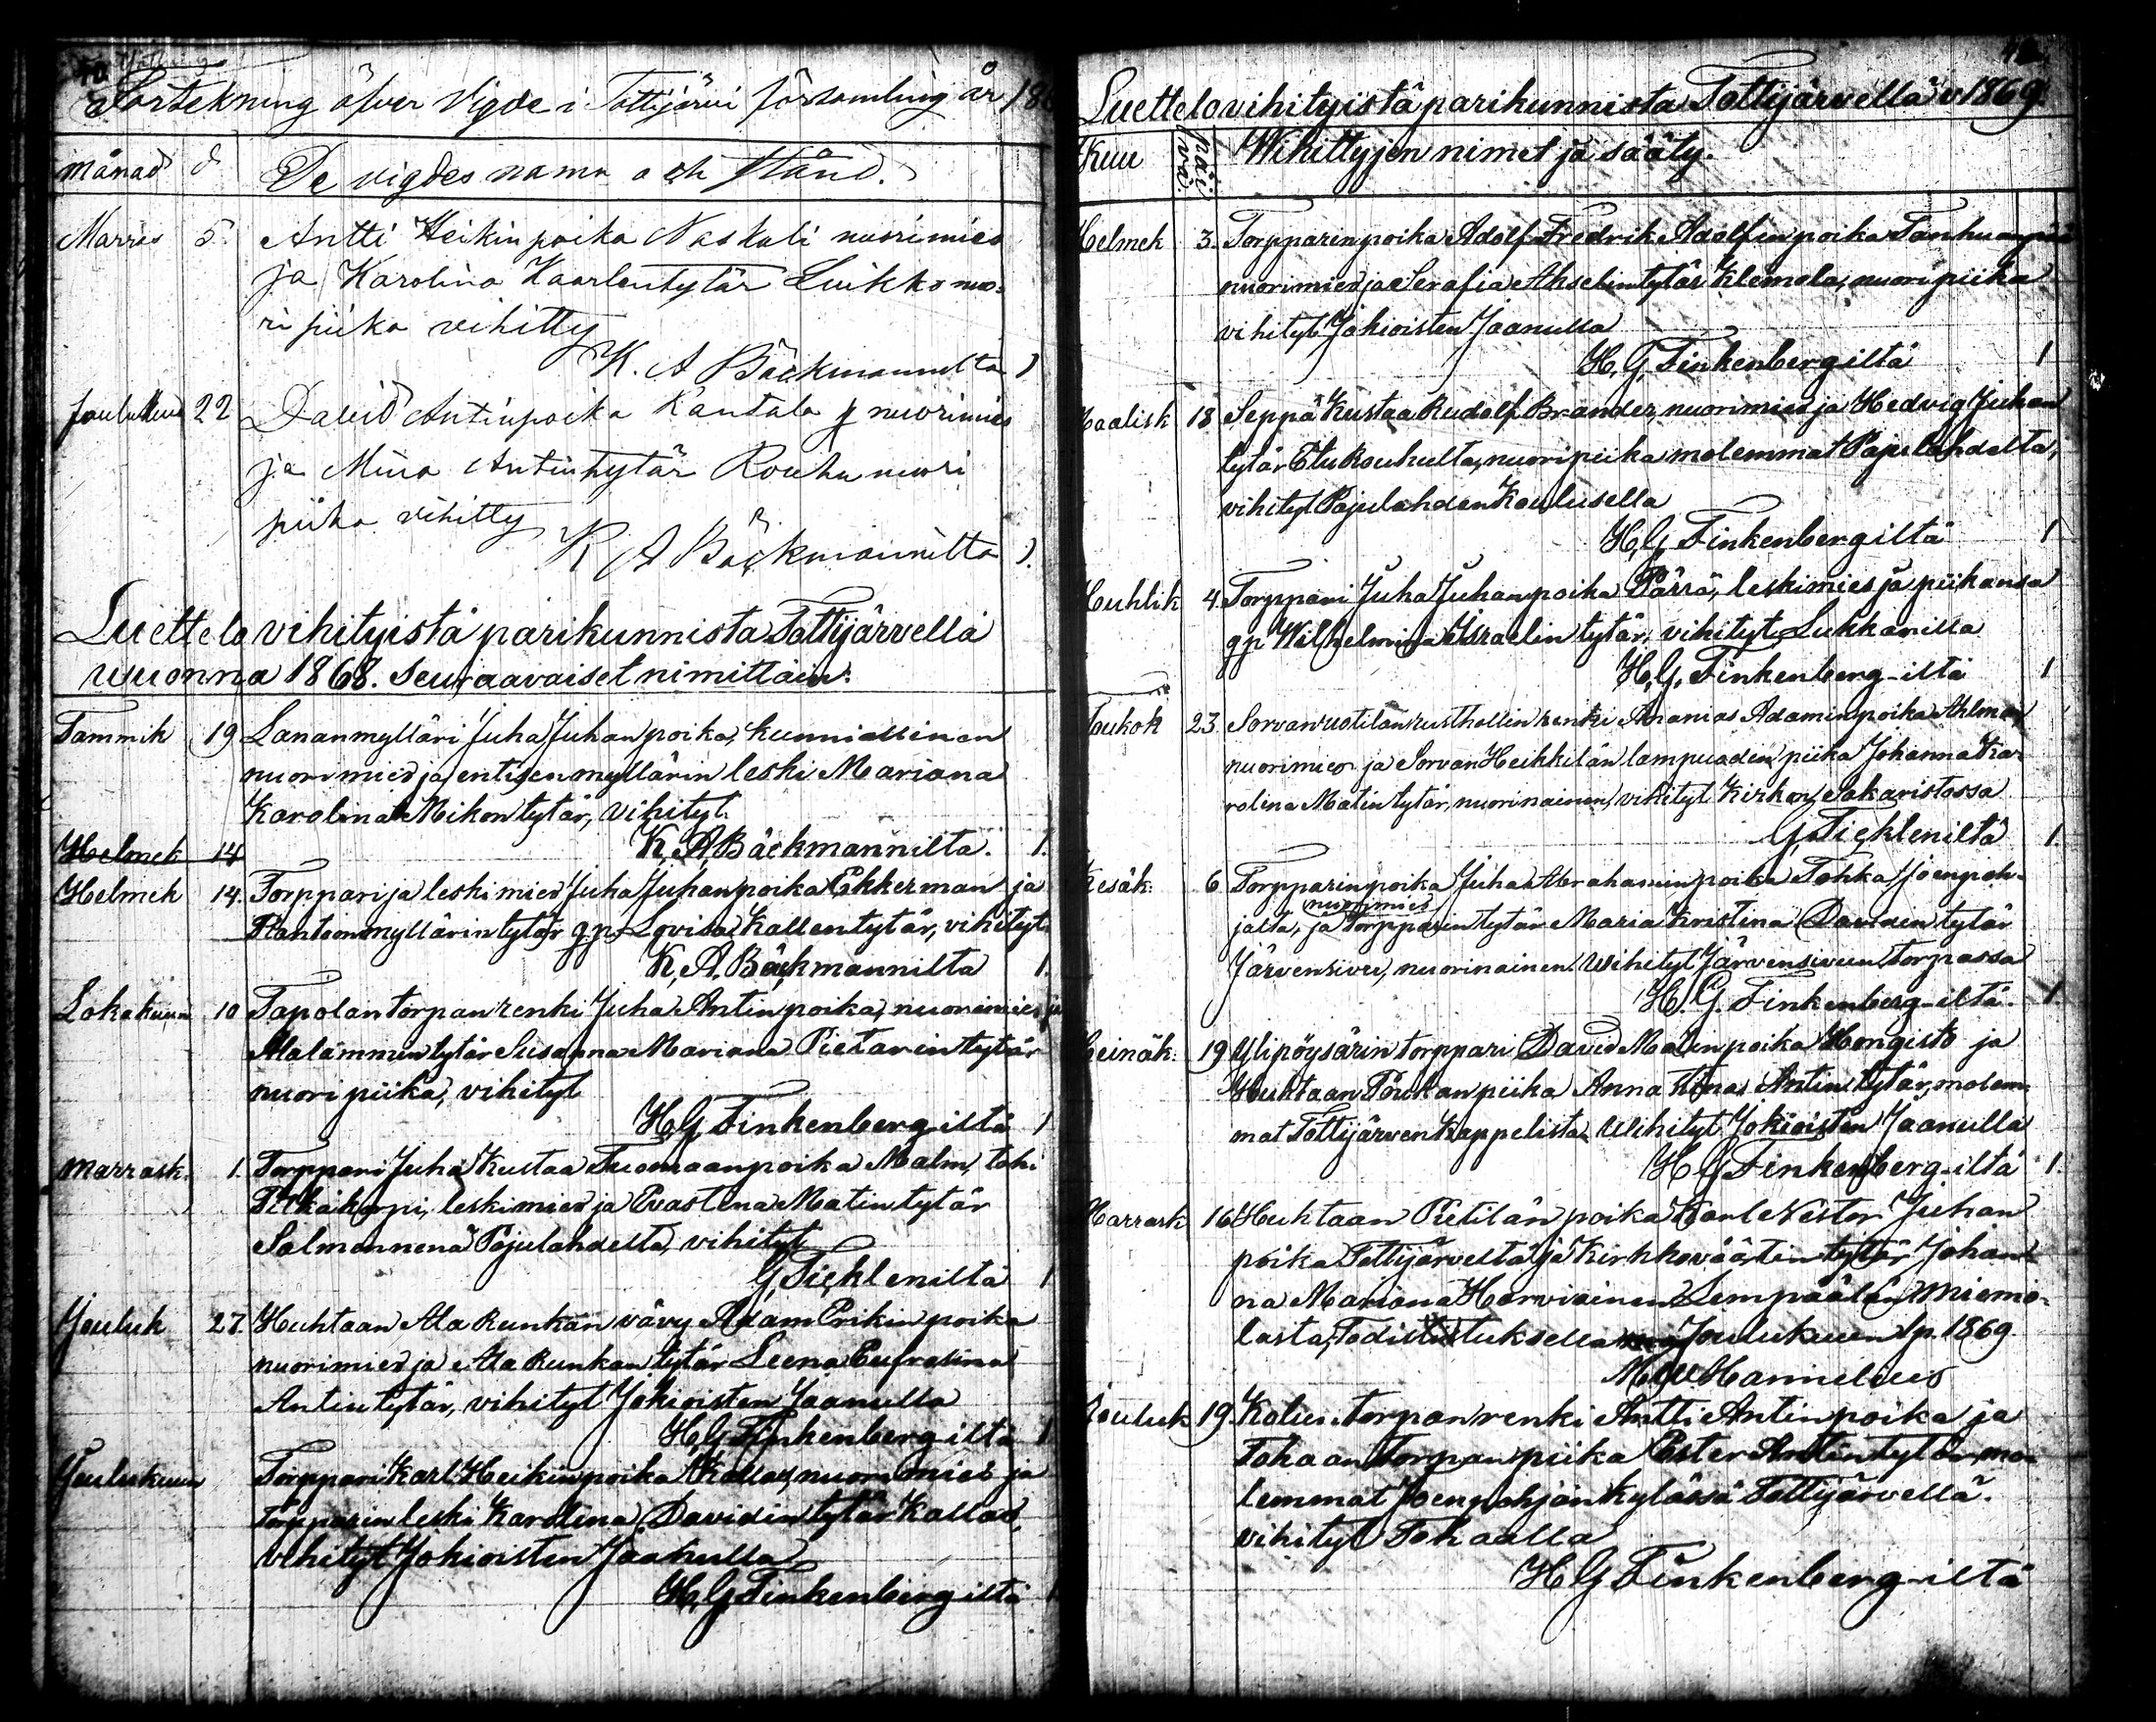 40.
Förtekning öfver Vigde i Tottijärvi församling år 18
Månad d De vigdes namn och stånd.
Marras 5. Antti Heikinpoika Naskali nuorimies
ja Karolina Kaarlentytär Luikko nuo-
ri piika vihitty
K. A Bäckmannilta 1
Joulukuu 22 David Antinpoika Kantala nuorimies
ja Miina Antintytär Rouhu nuori
piika vihitty
K A Bäckmannilta 1.
Luettelo vihityistä parikunnista Tottijärvellä
vuonna 1868. seuraavaiset nimittäin:
Tammik 19 Lananmylläri Juha Juhanpoika, kunniallinen
nuorimies ja entisen myllärin leski Mariana
Karolina Mikontytär, vihityt
K, A, Bäckmannilta. 1.
Helmek 14
Helmek 14. Torppari ja leskimies Juha Juhanpoika Ekkerman ja
myllärin tytär gp. Lovisa Kallentytär, vihityt
K, A. Bäckmannilta 1.
Lokakuun 10 Tapolan torpan renki Juha Antinpoika, nuorimies ja
Alalammen tytär Susanna Mariana Pietarintytär
nuori piika, vihityt
H,G, Finkenbergiltä 1
Marrask. 1. Torppari Juha Kustaa Tuomaanpoika Malm, tahi
Pitkäkorpi, leskimies ja Evastena Matintytär
Salmennenä Pajulahdelta, vihityt
G, Tickleniltä 1
Jouluk 27. Huhtaan Ala Runkan vävy Adam Erikinpoika
nuorimies ja Ala Runkan tytär Leena Eufrosina
Antintytär, vihityt Jokioisten Jaanulla
H,G Finkenbergiltä 1
Joulukuun Torppari Karl Heikinpoika Kallas, nuorimies ja
Torpparin leski Karolina Davidintytär Kallas,
vihityt Jokioisten Jaanulla
H,G Finkenbergiltä
Luettelo vihityistä parikunnista Tottijärvellä v 1869.
Kuu päivä Wihittyjen nimet ja sääty.
Helmek 3. Torpparinpoika Adolf Fredrik Adolfinpoika Tanhuanpää
nuorimies ja Serafia Akselintytär Klemola, nuoripiika
vihityt Jokioisten Jaanulla
H,G, Finkenbergiltä 1
Maalisk 18 Seppä Kustaa Rudolf Brander, nuorimies ja Hedvig Juhan
tytär Etu Rouhulta, nuoripiika molemmat Pajulahdelta,
vihityt Pajulahden Koulusella
H,G, Finkenbergiltä 1
Huhtik 4. Torppari Juha Juhanpoika Pärrä, leskimies ja piikansa
gp Wilhelmina Israelintytär, vihityt Lukkarilla
H,G, Finkenberg-iltä 1
Toukok 23. Sorvan uotilan rusthollin renki Ananias Adaminpoika Ahlman
nuorimies ja Sorvan Heikkilän lampuoden piika Johanna Ka-
rolina Matintytär, nuorinainen, vihityt Kirkon Sakaristossa
G, Tickleniltä 1.
Kesäk. 6 Torpparinpoika Juha Abrahaminpoika Tohka Joenpoh-
nuorimies
jasta, ja torpparintytär Maria Kristina Daviden tytär
Järvensivu, nuorinainen. Wihityt Järvensivun torpassa
H. G. Finkenberg-iltä. 1.
Heinäk. 19 Ylipöysärin torppari David Matinpoika Hongisto ja
Huhtaan Pouhan piika Anna Tiina Antintytär, molem-
mat Tottijärven Kappelista, Wihityt Jokioisten Jaanulla
H. G Finkenberg-iltä 1.
Marrask 16 Huhtaan Pietilän poika Karle Nestor Juhan
poika Tottijärveltä ja kirkkoväärtin tytär Johan-
na Mariana Horviainen Lempäälän Miemo-
lasta, Todistuksella Joulukuun 1p. 1869
Hannelius
Jouluk 19. Kolus torpan renki Antti Antinpoika ja
Tohaan torpan piika Ester Antintytär, mo-
lemmat Joenpohjan kylässä Tottijärvellä.
vihityt Tohaalla
H G Finkenberg-iltä